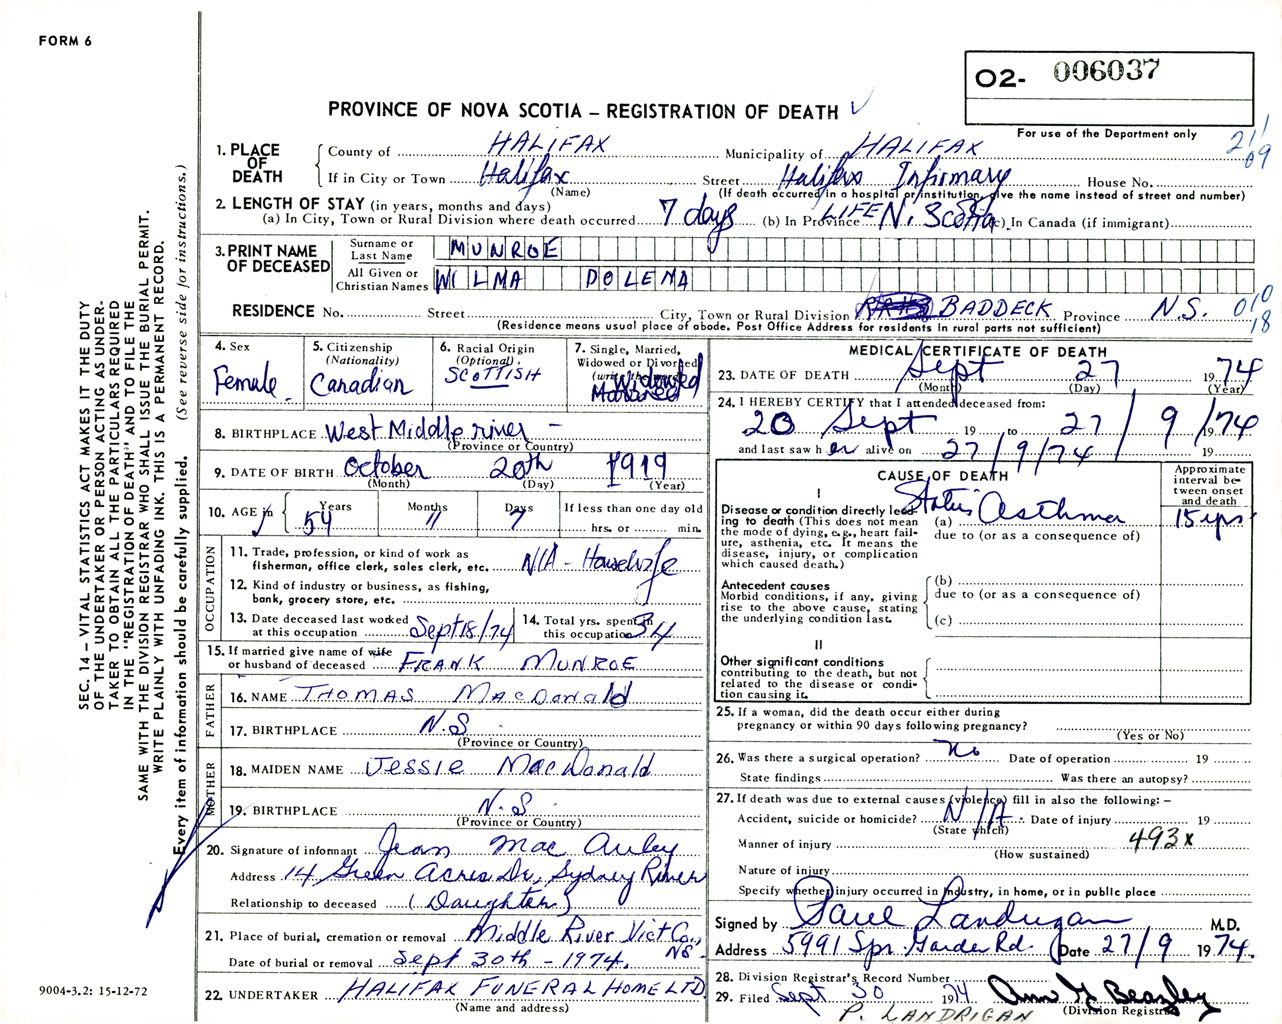 FORM 6
O2- 006037
PROVINCE OF NOVA SCOTIA – REGISTRATION OF DEATH
For use of the Department only
211
09
1. PLACE OF DEATH
County of HALIFAX Municipality of HALIFAX
If in City or Town Halifax Street Halifax Infirmary House No.
(Name) (If death occurred in a hospital or institution, give the name instead of street and number)
2. LENGTH OF STAY (in years, months and days)
(a) In City, Town or Rural Division where death occurred 7 days (b) In Province LIFE N. Scotia (c) In Canada (if immigrant)
3. PRINT NAME OF DECEASED
Surname or Last Name MUNROE
All Given or Christian Names WILMA DOLENA
RESIDENCE No. Street City, Town or Rural Division BADDECK Province N.S. 010
18
(Residence means usual place of abode. Post Office Address for residents in rural parts not sufficient)
4. Sex Female
5. Citizenship (Nationality) Canadian
6. Racial Origin (Optional) SCOTTISH
7. Single, Married, Widowed or Divorced Widowed
8. BIRTHPLACE West Middle river –
(Province or Country)
9. DATE OF BIRTH October 20th 1919
(Month) (Day) (Year)
10. AGE in Years 54 Months 11 Days 7 If less than one day old
hrs. or min.
OCCUPATION
11. Trade, profession, or kind of work as
fisherman, office clerk, sales clerk, etc. N/A - Housewife
12. Kind of industry or business, as fishing,
bank, grocery store, etc.
13. Date deceased last worked at this occupation Sept 18/74
14. Total yrs. spent in this occupation 34
15. If married give name of wife
or husband of deceased FRANK MUNROE
FATHER
16. NAME THOMAS MACDonald
17. BIRTHPLACE N.S.
(Province or Country)
MOTHER
18. MAIDEN NAME JESSIE MACDonald
19. BIRTHPLACE N.S.
(Province or Country)
20. Signature of informant Jean Mac Auley
Address 14 Green Acres Dr, Sydney River
Relationship to deceased (Daughter)
21. Place of burial, cremation or removal Middle River Vict Co., NS.
Date of burial or removal Sept 30th – 1974.
22. UNDERTAKER HALIFAX FUNERAL HOME LTD.
(Name and address)
MEDICAL CERTIFICATE OF DEATH
23. DATE OF DEATH Sept 27 1974
(Month) (Day) (Year)
24. I HEREBY CERTIFY that I attended deceased from:
20 Sept 19 to 27/9/74 19
and last saw h er alive on 27/9/74 19
CAUSE OF DEATH
Approximate interval between onset and death
I
Disease or condition directly leading to death (This does not mean the mode of dying, e.g., heart failure, asthenia, etc. It means the disease, injury, or complication which caused death.)
(a) Status Asthma 15 yrs
due to (or as a consequence of)
Antecedent causes
Morbid conditions, if any, giving rise to the above cause, stating the underlying condition last.
(b)
due to (or as a consequence of)
(c)
II
Other significant conditions
contributing to the death, but not related to the disease or condition causing it.
25. If a woman, did the death occur either during
pregnancy or within 90 days following pregnancy?
(Yes or No)
26. Was there a surgical operation? No Date of operation 19
State findings Was there an autopsy?
27. If death was due to external causes (violence) fill in also the following: –
Accident, suicide or homicide? N/A. Date of injury 19
(State which)
Manner of injury 493x
(How sustained)
Nature of injury
Specify whether injury occurred in industry, in home, or in public place
Signed by Paul Landrigan M.D.
Address 5991 Spr. Garden Rd. Date 27/9 1974
28. Division Registrar's Record Number
29. Filed Sept 30 1974 Ann G Beazley
(Division Registrar)
P. LANDRIGAN
SEC. 14 – VITAL STATISTICS ACT MAKES IT THE DUTY
OF THE UNDERTAKER OR PERSON ACTING AS UNDER-
TAKER TO OBTAIN ALL THE PARTICULARS REQUIRED
IN THE "REGISTRATION OF DEATH" AND TO FILE THE
SAME WITH THE DIVISION REGISTRAR WHO SHALL ISSUE THE BURIAL PERMIT.
WRITE PLAINLY WITH UNFADING INK. THIS IS A PERMANENT RECORD.
Every item of information should be carefully supplied. (See reverse side for instructions.)
9004-3.2: 15-12-72